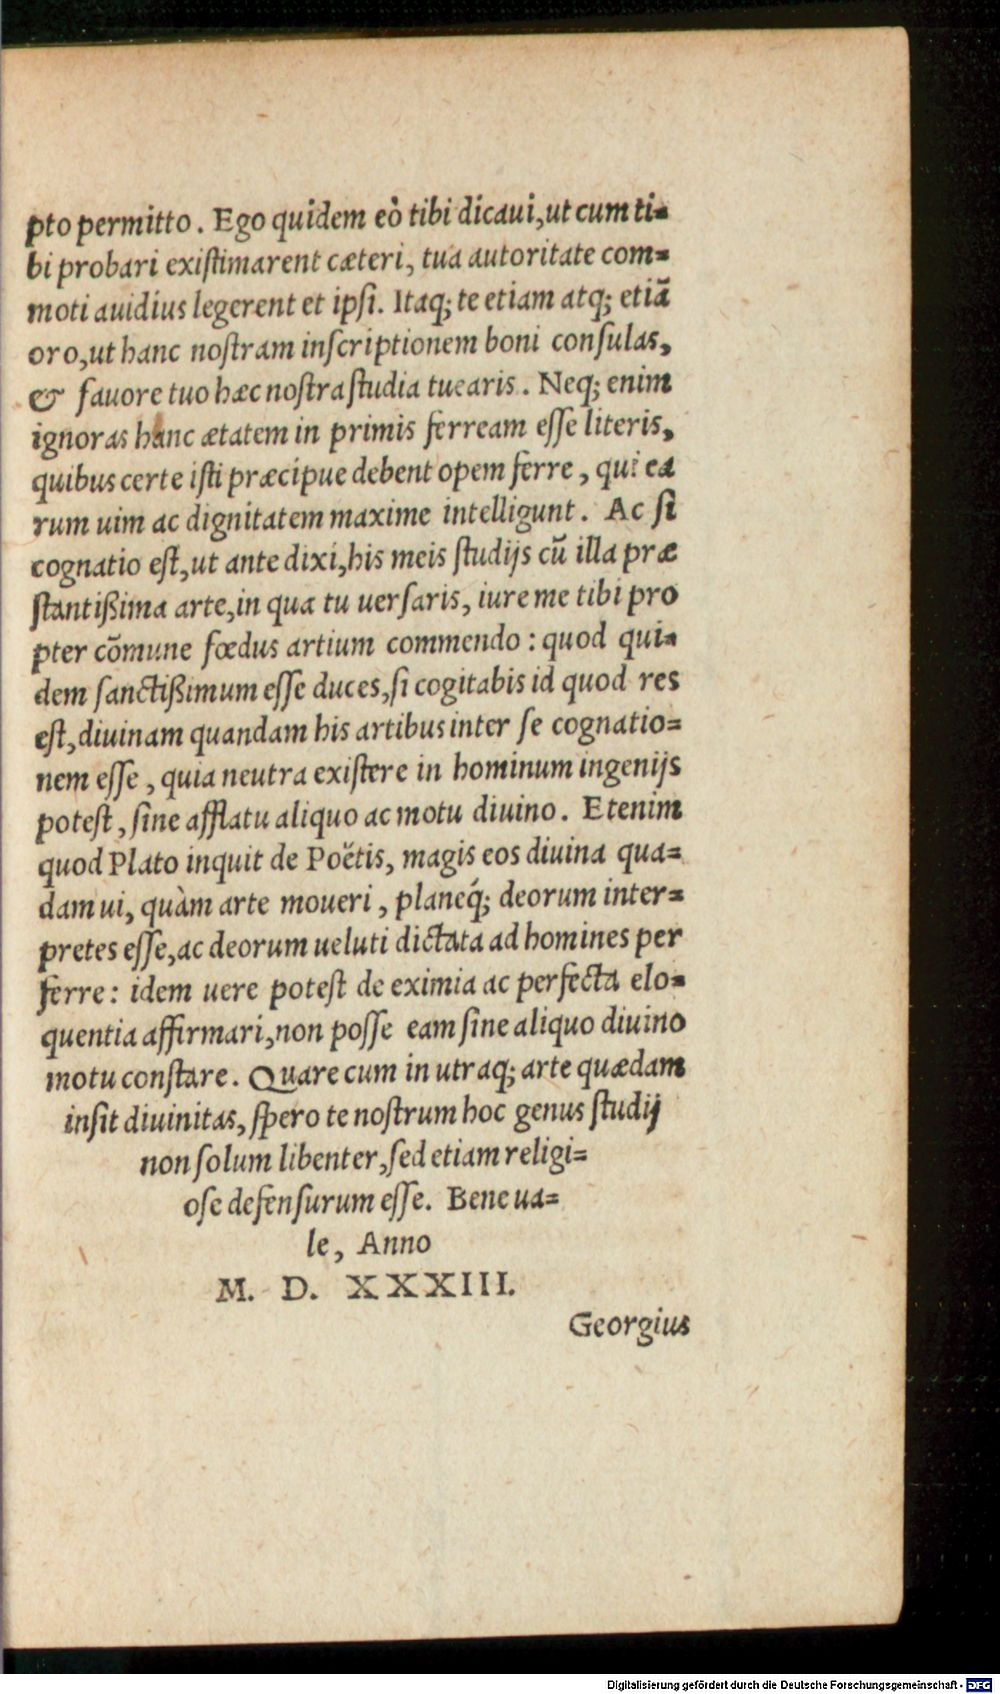 pto permitto. Ego quidem eò tibi dicaui, ut cum ti=
bi probari existimarent cæteri, tua autoritate com=
moti auidius legerent et ipsi. Itaq; te etiam atq; etiā
oro, ut hanc nostram inscriptionem boni consulas,
& fauore tuo hæc nostra studia tuearis. Neq; enim
ignoras hanc ætatem in primis ferream esse literis,
quibus certe isti præcipue debent opem ferre, qui ea
rum uim ac dignitatem maxime intelligunt. Ac si
cognatio est, ut ante dixi, his meis studijs cū illa præ
stantißima arte, in qua tu uersaris, iure me tibi pro
pter cōmune fœdus artium commendo: quod qui=
dem sanctißimum esse duces, si cogitabis id quod res
est, diuinam quandam his artibus inter se cognatio=
nem esse, quia neutra existere in hominum ingenijs
potest, sine afflatu aliquo ac motu diuino. Etenim
quod Plato inquit de Poëtis, magis eos diuina qua=
dam ui, quàm arte moueri, planeq́; deorum inter=
pretes esse, ac deorum ueluti dictata ad homines per
ferre: idem uere potest de eximia ac perfecta elo=
quentia affirmari, non posse eam sine aliquo diuino
motu constare. Quare cum in utraq; arte quædam
insit diuinitas, spero te nostrum hoc genus studij
non solum libenter, sed etiam religi=
ose defensurum esse. Bene ua=
le, Anno
M. D. XXXIII.
Georgius
Digitalisierung gefördert durch die Deutsche Forschungsgemeinschaft - DFG